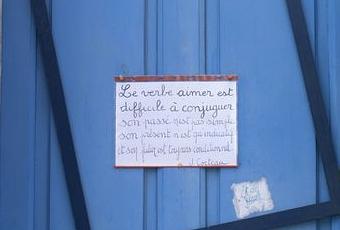 Le verbe aimer est
difficile à conjuguer
son passé n'est pas simple
son présent n'est qu'indicatif
et son futur est toujours conditionnel
J. Cocteau